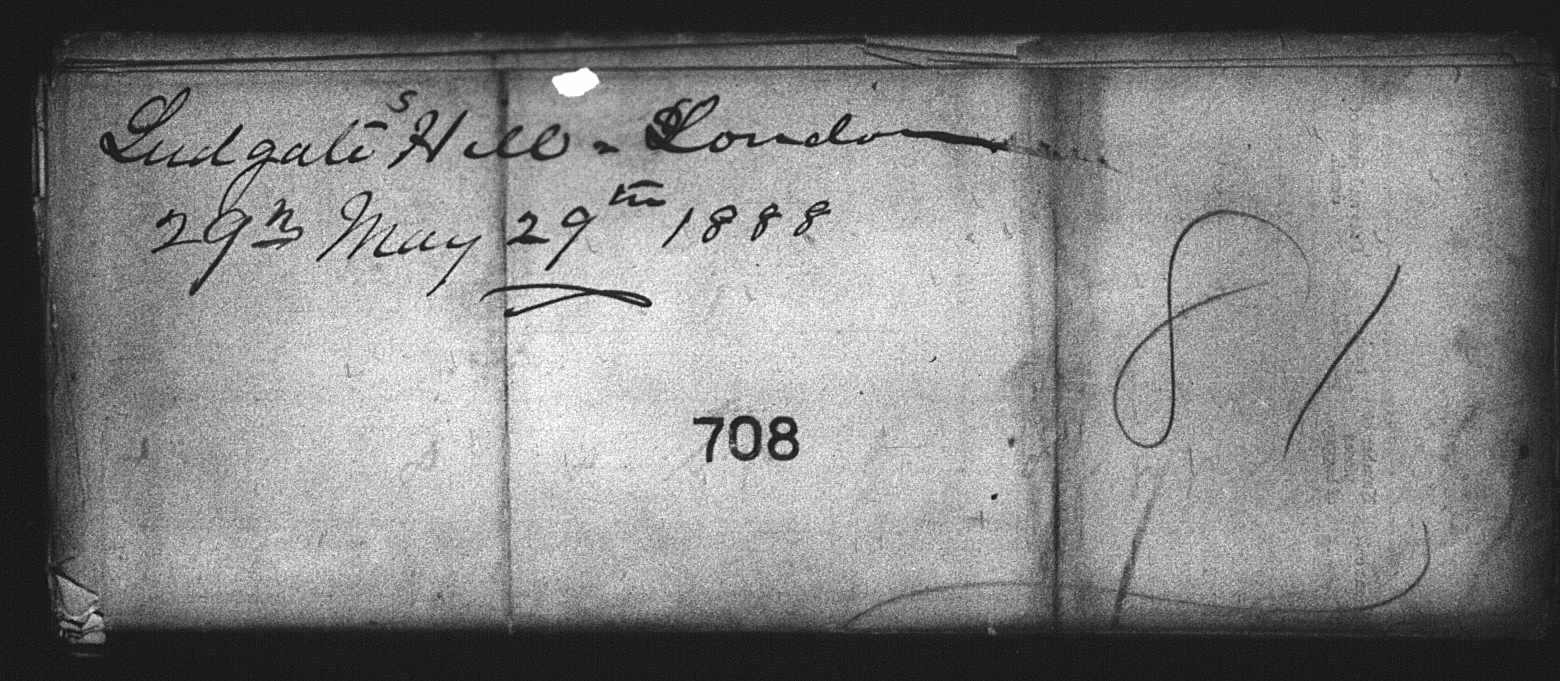 Ludgate Hill - London
29th May 29th 1888
708
81